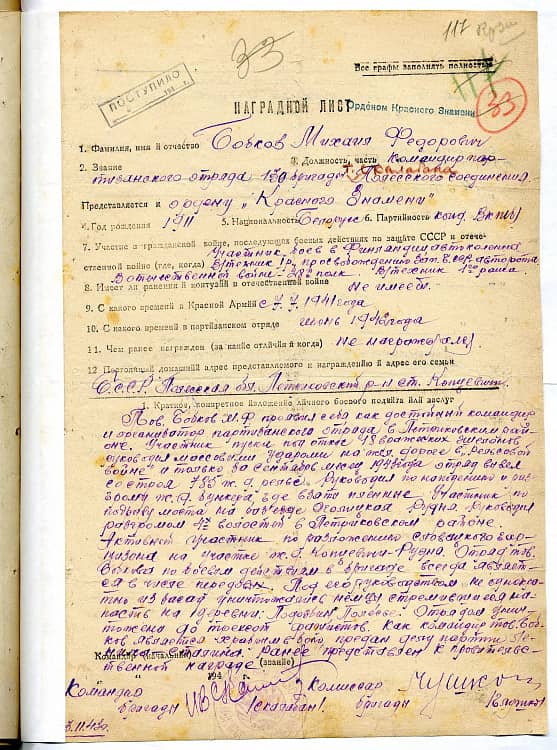 33
117
Все графы заполнять полностью
ПОСТУПИЛО
НАГРАДНОЙ ЛИСТ Орденом Красного Знамени
33
1. Фамилия, имя и отчество Бобков Михаил Федорович
2. Звание 3. Должность, часть Командир пар-
тизанского отряда 130 бригады Полесского соединения
Представляется к ордену "Красного Знамени"
4. Год рождения 1911 5. Национальность Белорус 6. Партийность канд. ВКП(б)
7. Участие в гражданской войне, последующих боевых действиях по защите СССР и отече-
ственной войне (где, когда) Участник боев в Финляндии автоколонна
В отечественной войне 38 полк. В/техник 1го ранга
8. Имеет ли ранения и контузии в отечественной войне не имеет
9. С какого времени в Красной Армии с 7.7.1941 года
10. С какого времени в партизанском отряде июнь 1942 года
11. Чем ранее награжден (за какие отличия и когда) не награждался
12 Постоянный домашний адрес представляемого к награждению и адрес его семьи
БССР Полесская обл. Петриковский р-н ст. Копцевичи
1. Краткое, конкретное изложение личного боевого подвига или заслуг
Тов. Бобков М.Ф. проявил себя как достойный командир
и организатор партизанского отряда в Петриковском рай-
оне. Участник пуска под откос 18 вражеских эшелонов
руководил массовыми ударами на жел. дороге в "рельсовой
войне" и только за сентябрь месяц 1943 года отряд вывел
со строя 735 ж.д. рельс. Руководил по нападению и раз-
грому ж.д. бункера, где взяты пленные. Участник по
подрыву моста на разъезде Рудня. Руководил
разгромом 4х волостей в Петриковском районе.
Активный участник по разложению словацкого гар-
низона на участке ж.д. Копцевичи-Рудня. Отряд тов.
Бобкова по боевым действиям в бригаде всегда является
ся в числе передовых. Под его руководством не однокра-
тно из засад уничтожались немцы стремившиеся на-
пасть на деревни: Полесье. Отрядом унич-
тожено до трехсот фашистов. Как командир тов. Боб-
ков является хорошим предан делу партии Ле-
нина-Сталина. Ранее представлен к правительс-
твенной награде
Командир (начальник)
(звание)
" " 194 г.
Командир Комиссар
бригады бригады
3.11.43г.